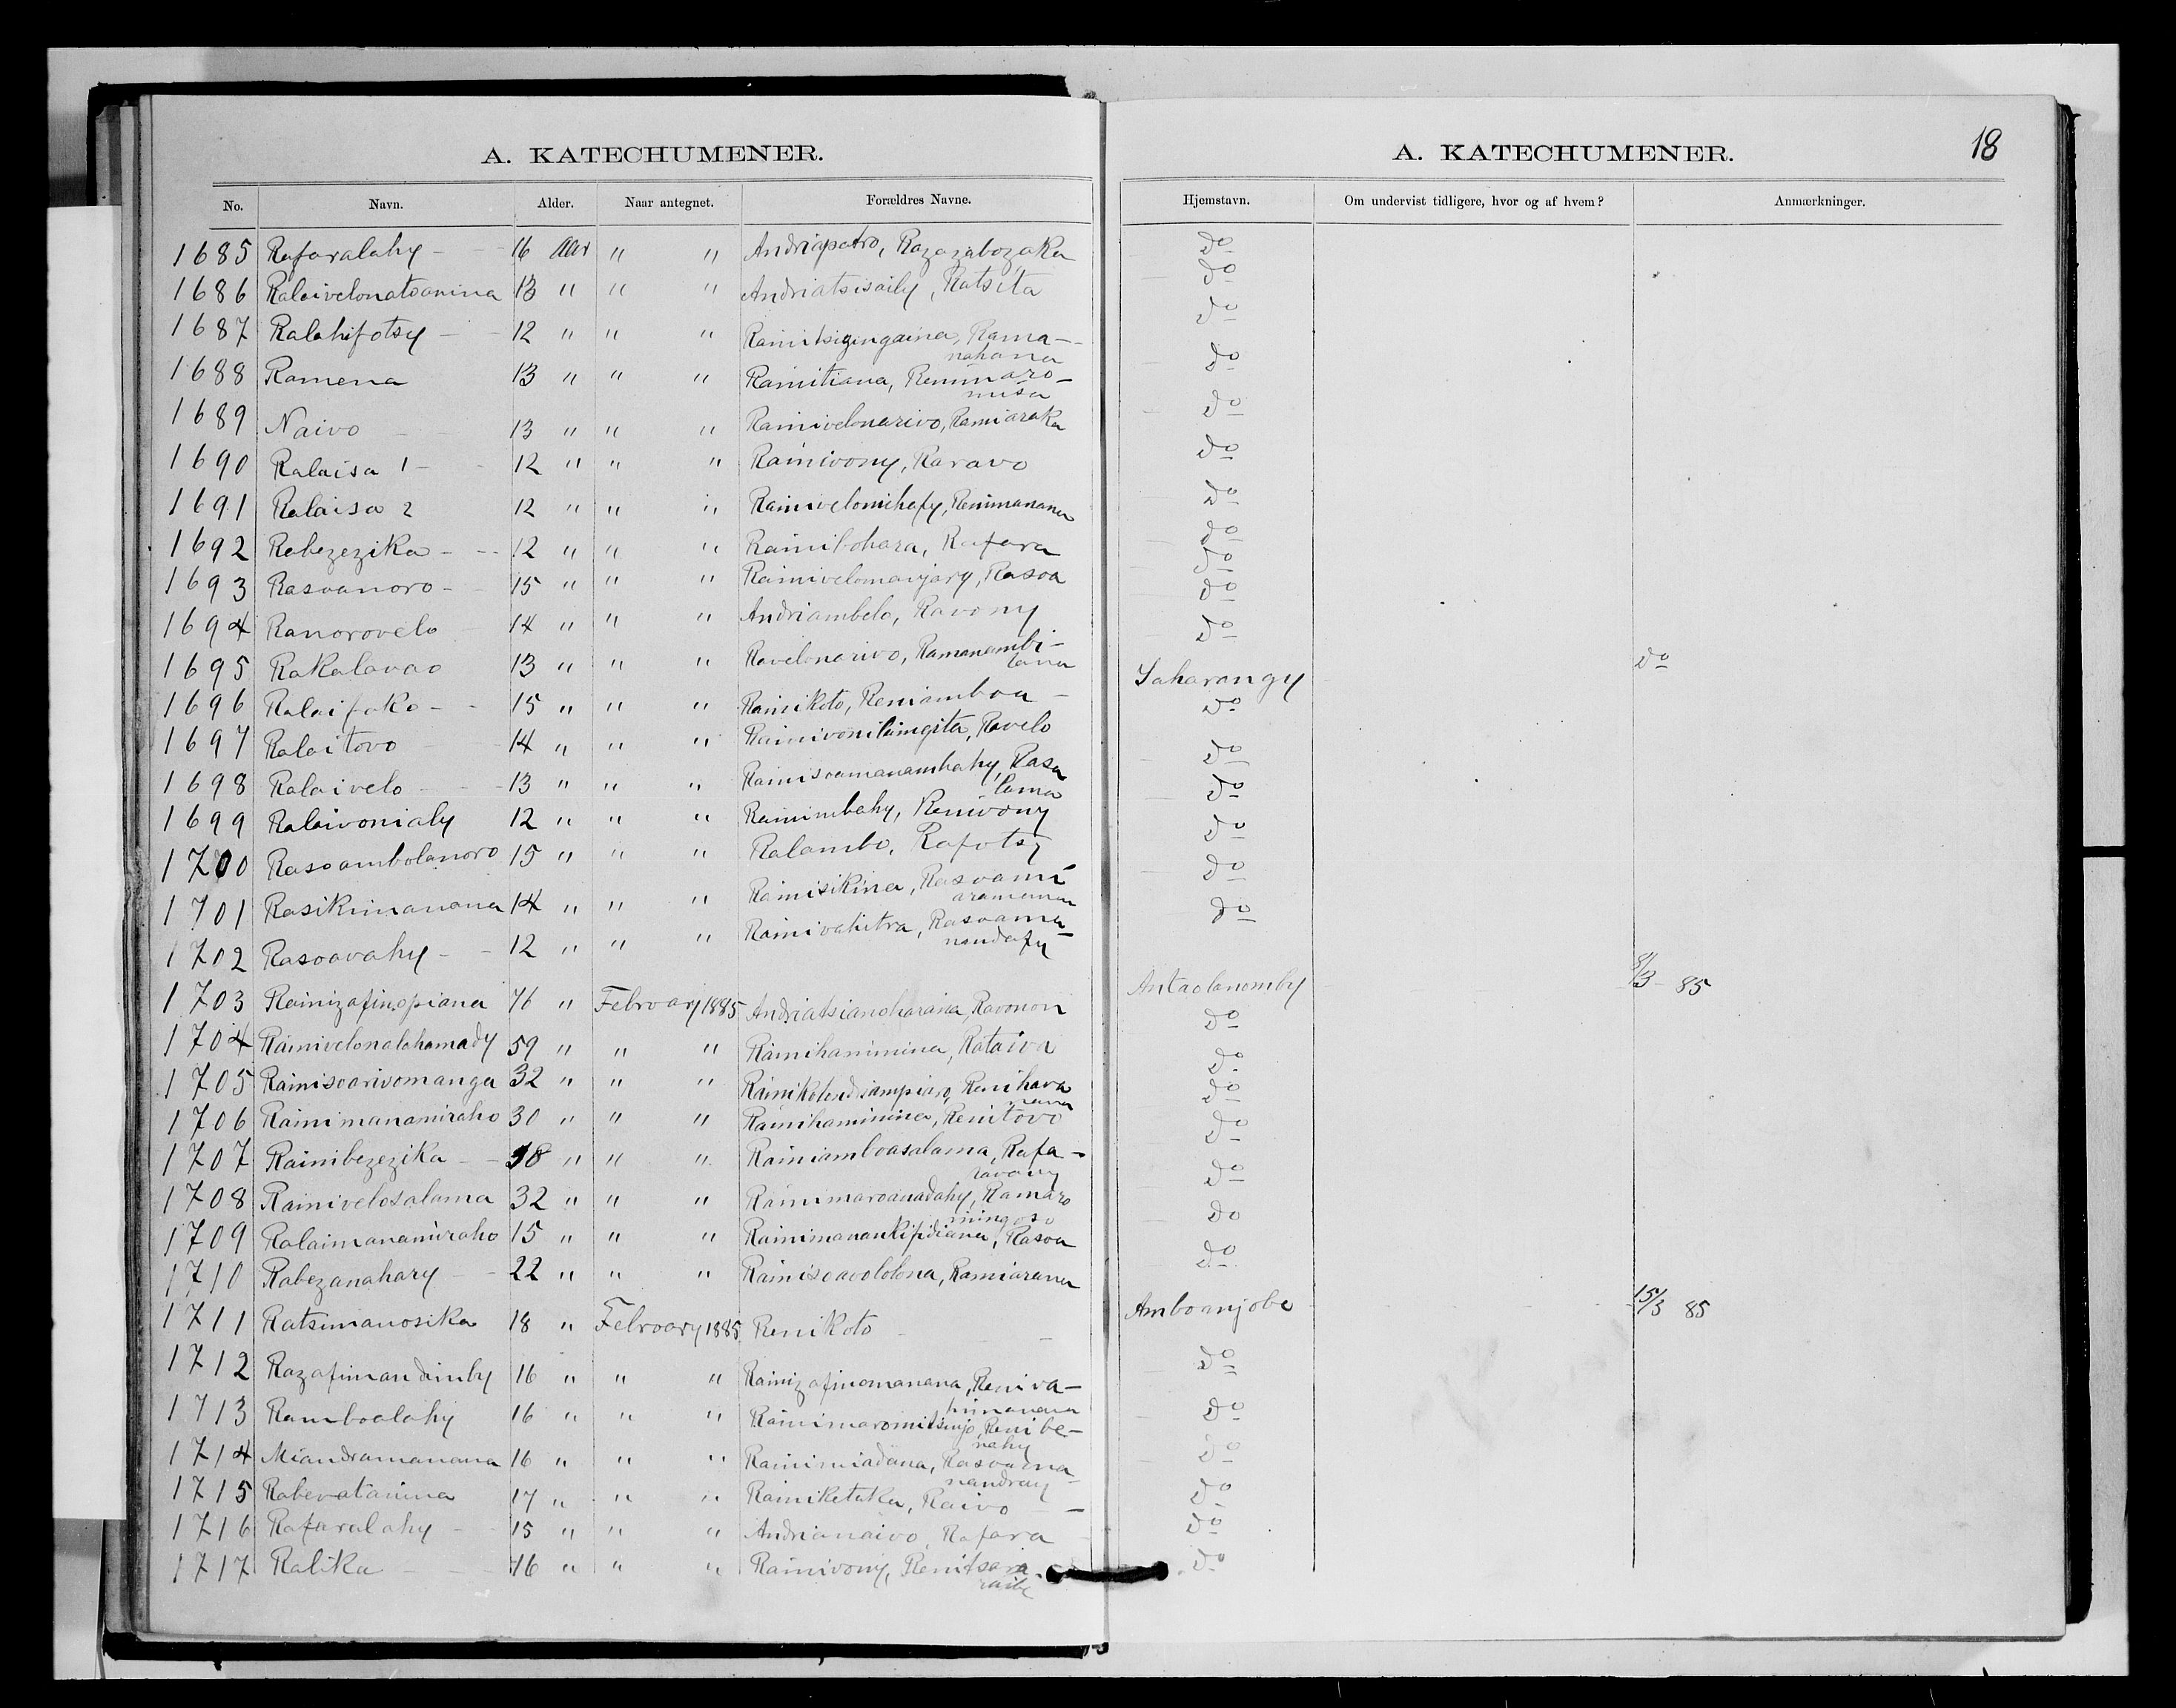 A. KATECHUMENER.
No. Navn. Alder. Naar antegnet. Forældres Navne.
1685 Rafaralahy - 16 Aar " " Andriapatro, Razazabozaka
1686 Ralaivelonatoanina 13 " " " Andriatsisaily, Ratsita
1687 Ralahifotsy - 12 " " " Rainitsigingaina, Rama-
nahana
1688 Ramena 13 " " " Rainitiana, Renimaro-
misa
1689 Naivo - 13 " " " Rainivelonarivo, Ramiaraka
1690 Ralaisa 1 - 12 " " " Rainivony, Raravo
1691 Ralaisa 2 12 " " " Rainivelomihafy, Renimanana
1692 Rabezezika - 12 " " " Rainibohara, Rafara
1693 Rasoanoro - 15 " " " Rainivelomanjary, Rasoa
1694 Ranorovelo 14 " " " Andriambelo, Ravony
1695 Rakalavao 13 " " " Ravelonarivo, Ramanambi-
tana
1696 Ralaifoko - 15 " " " Rainikoto, Reniamboa -
1697 Ralaitovo 14 " " " Rainivonilaingita, Ravelo
1698 Ralaivelo - 13 " " " Rainisoamanambahy, Rasa
lama
1699 Ralaivonialy 12 " " " Rainimbahy, Renivony
1700 Rasoambolanoro 15 " " " Ralambo, Rafotsy
1701 Rasikimanana 14 " " " Rainisikina, Rasoami
aramanana
1702 Rasoavahy - 12 " " " Rainivahitra, Rasoama-
nandafy
1703 Rainizafinopiana 76 " February 1885 Andriatsianoharana, Ravonon
1704 Rainivelonalahamady 59 " " " Rainihaminina, Rataiva
1705 Rainisoarivomanga 32 " " " Rainikelindriampiaro, Renihava
nana
1706 Rainimanamiraho 30 " " " Rainihaminina, Renitovo
1707 Rainibezezika - 38 " " " Rainiamboasalama, Rafa-
ravony
1708 Rainivelosalama 32 " " " Rainimaroanadahy, Ramaro
mingoso
1709 Ralaimanamiraho 15 " " " Rainimanankifidiana, Rasoa
1710 Rabezanahary - 22 " " " Rainisoavololona, Ramiarana
1711 Ratsimanosika 18 " February 1885 Renikoto -
1712 Razafimandimby 16 " " " Rainizafinomanana, Reniva-
himanana
1713 Ramboalahy 16 " " " Rainimaromitsinjo, Renibe-
nahy
1714 Miandramanana 16 " " " Rainimiadana, Rasoama-
nandray
1715 Rabevatanina 17 " " " Rainiketaka, Raivo -
1716 Rafaralahy - 15 " " " Andrianaivo, Rafara
1717 Ralika - 16 " " " Rainivony, Renitsara-
raiby
A. KATECHUMENER. 18
Hjemstavn. Om undervist tidligere, hvor og af hvem? Anmærkninger.
do
do
do
do
do
do
do
do
do
do
do
Saharangy do
do
do
do
do
do
do
Antaolanomby 8/3 - 85
do
do
do
do
do
do
do
Amboanjobe 15/3 85
do
do
do
do
do
do